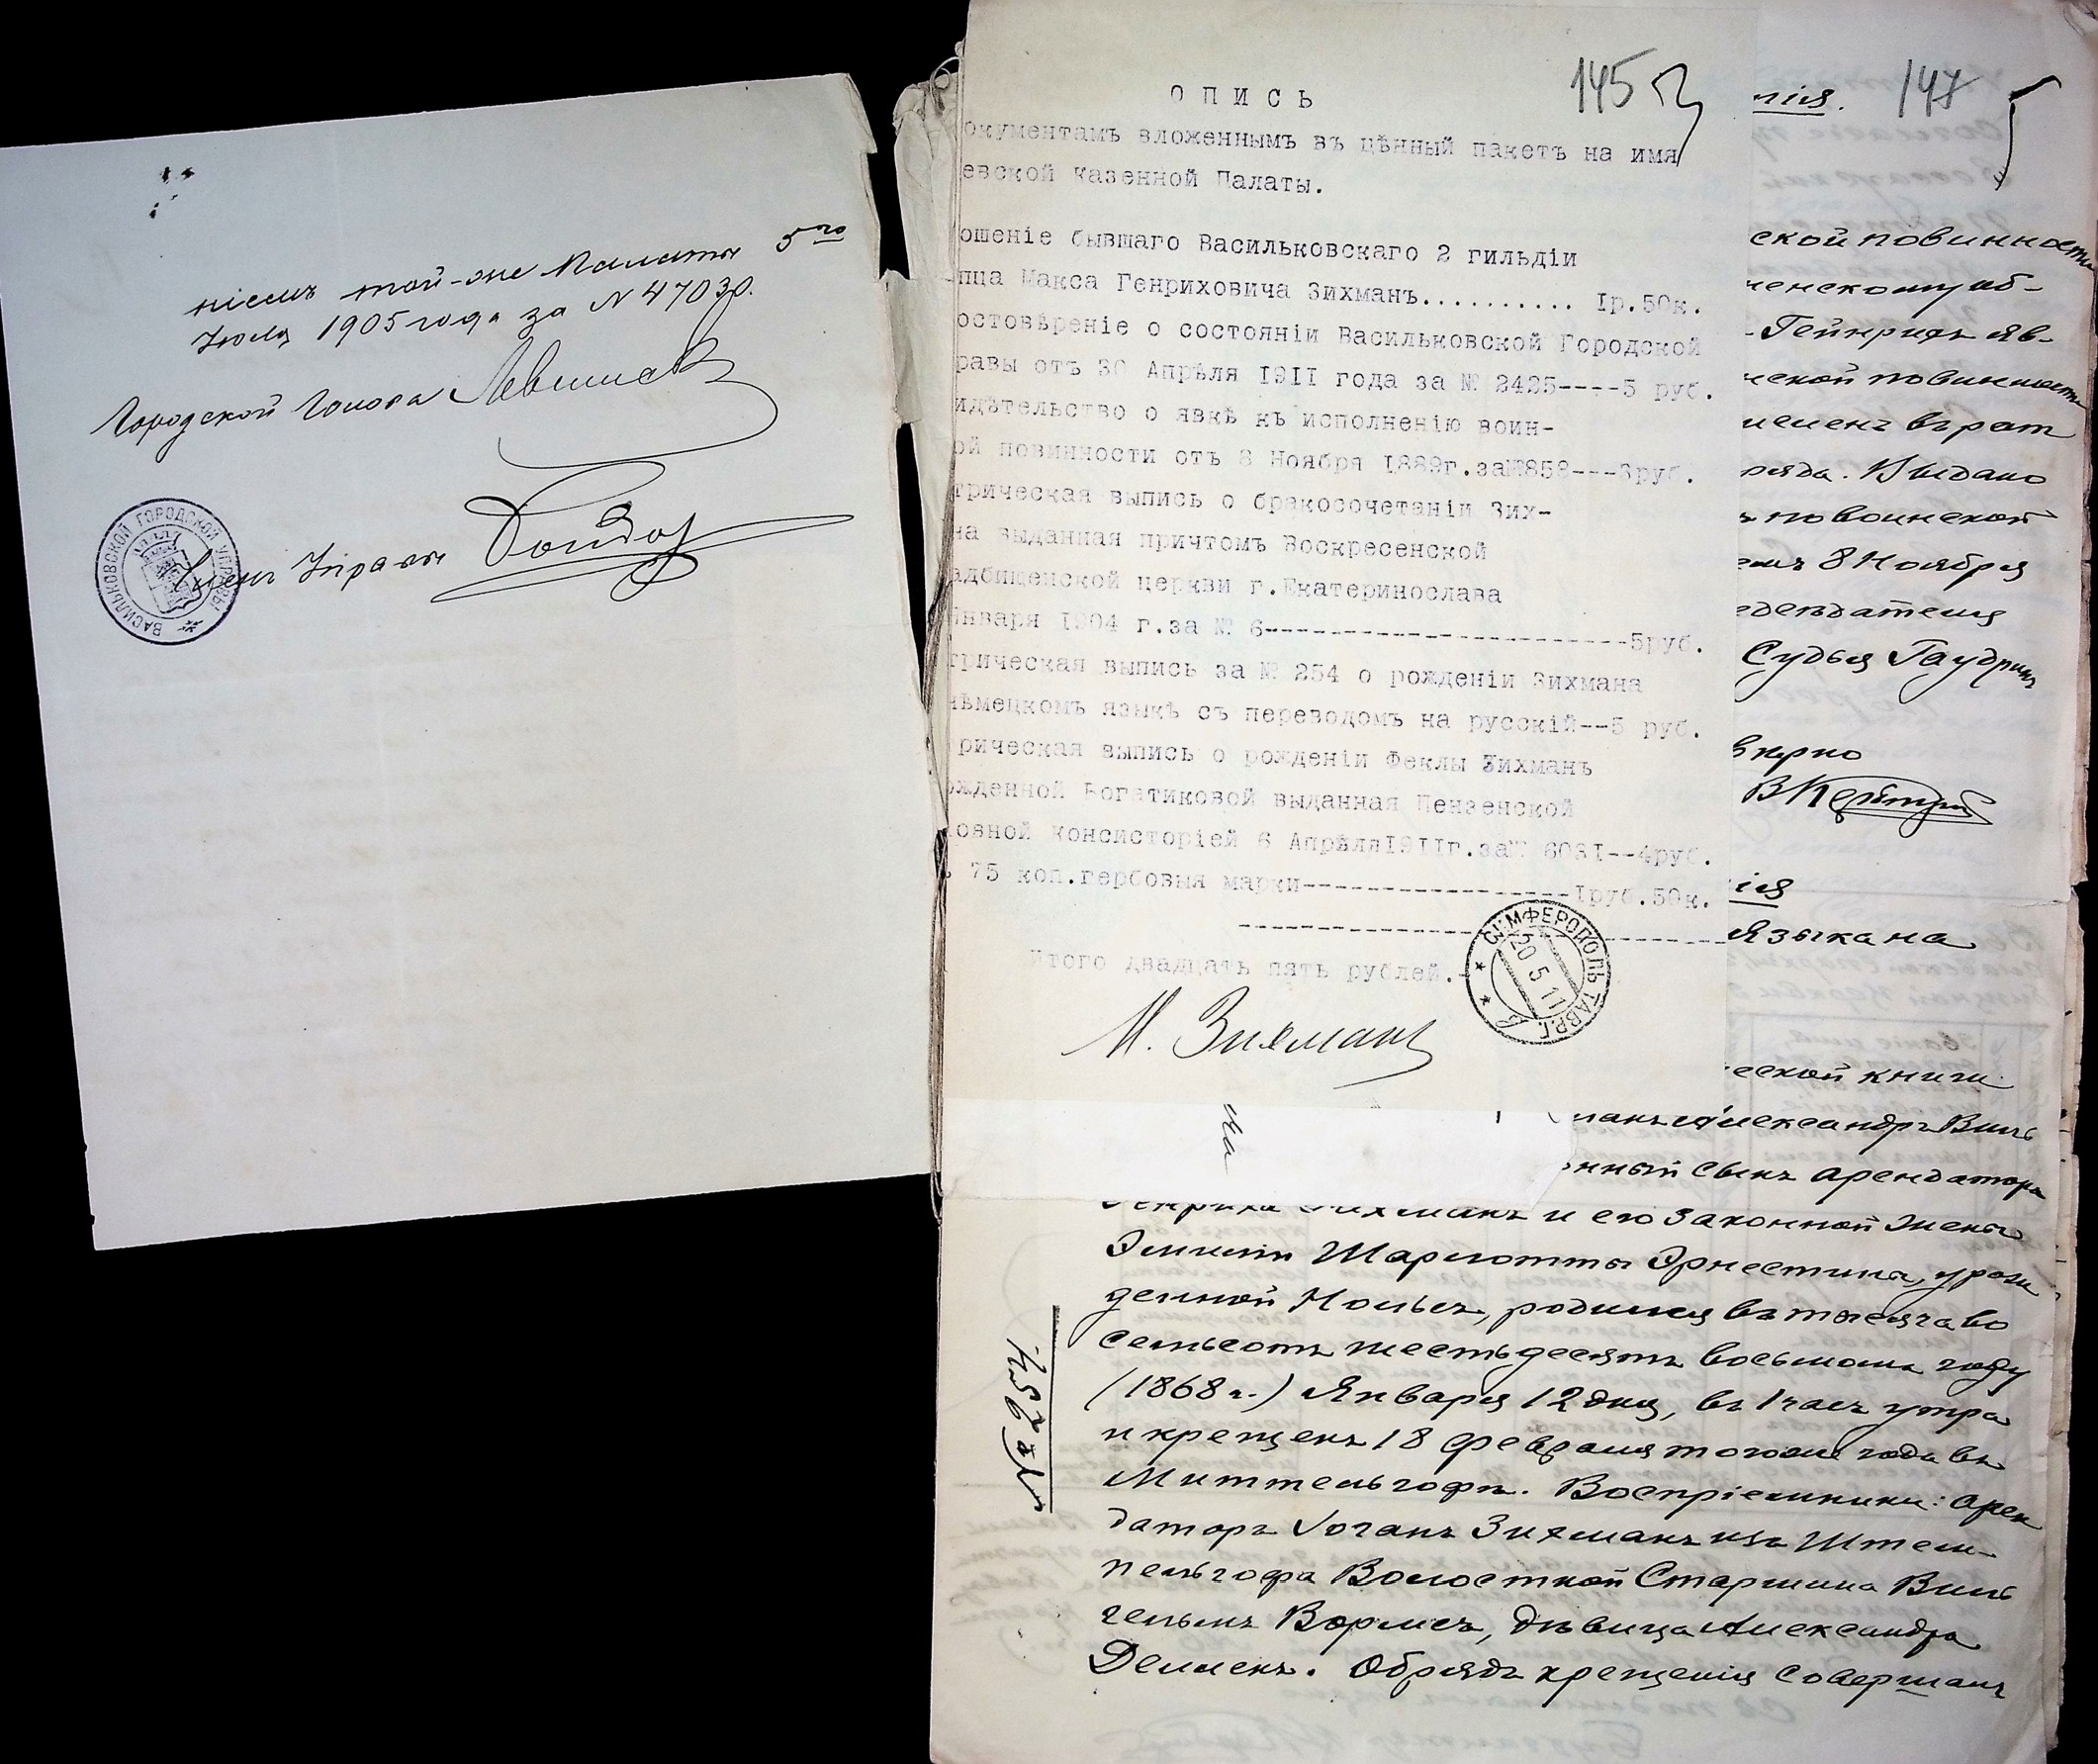 ніемъ той-же Палаты 5го
Іюля 1905 года за № 47030.
Городской Голова
Членъ Управы
ВАСИЛЬКОВСКОЙ ГОРОДСКОЙ УПРАВЫ
145
ОПИСЬ
окументамъ вложеннымъ въ цѣнный пакетъ на имя
евской Казенной Палаты.
ошеніе бывшаго Васильковскаго 2 гильдіи
пца Макса Генриховича Зихманъ.......... Iр.50к.
остовѣреніе о состояніи Васильковской Городской
равы отъ 30 Апрѣля I9II года за № 2425----5 руб.
идѣтельство о явкѣ къ исполненію воин-
ой повинности отъ 8 Ноября I889г.за№858---3руб.
трическая выпись о бракосочетаніи Зих-
на выданная причтомъ Воскресенской
адбищенской церкви г.Екатеринослава
Января I904 г.за № 6------------------------5руб.
трическая выпись за № 254 о рожденіи Зихмана
нѣмецкомъ языкѣ съ переводомъ на русскій--5 руб.
рическая выпись о рожденіи Феклы Зихманъ
ожденной Богатиковой выданная Пензенской
овной консисторіей 6 АпрѣляI9IIг.за№ 603I--4руб.
75 коп.гербовыя марки-----------------Iруб.50к.
Итого двадцать пять рублей.-
СИМФЕРОПОЛЬ ТАВР.Г.
20 5 11
М. Зихманъ
на
лія. 147
ской повинности
ченскому об-
- Гейнрихъ яв-
нской повинности
исленъ въ рат
ряда. Выдано
по воинской
емъ 8 Ноября
едсѣдателя
Судья
вѣрно
ія
языка на
ческой книги
манъ Александръ Виль
онный сынъ арендатора
Генриха Зихманъ и его законной жены
Эмиліи Шарлотты Эрнестины, урож
денной Нольсъ, родился въ тысяча во
семьсотъ шестьдесятъ восьмомъ году
(1868 г.) Января 12 дня, въ 1 часъ утра
и крещенъ 18 февраля того же года въ
Миттельгофѣ. Воспріемники: арен
даторъ Іоганъ Зихманъ изъ Штем-
пельгофа Волостной Старшина Виль
гельмъ Вормсъ, дѣвица Александра
Демменъ. Обрядъ крещенія совершалъ
№ 254.